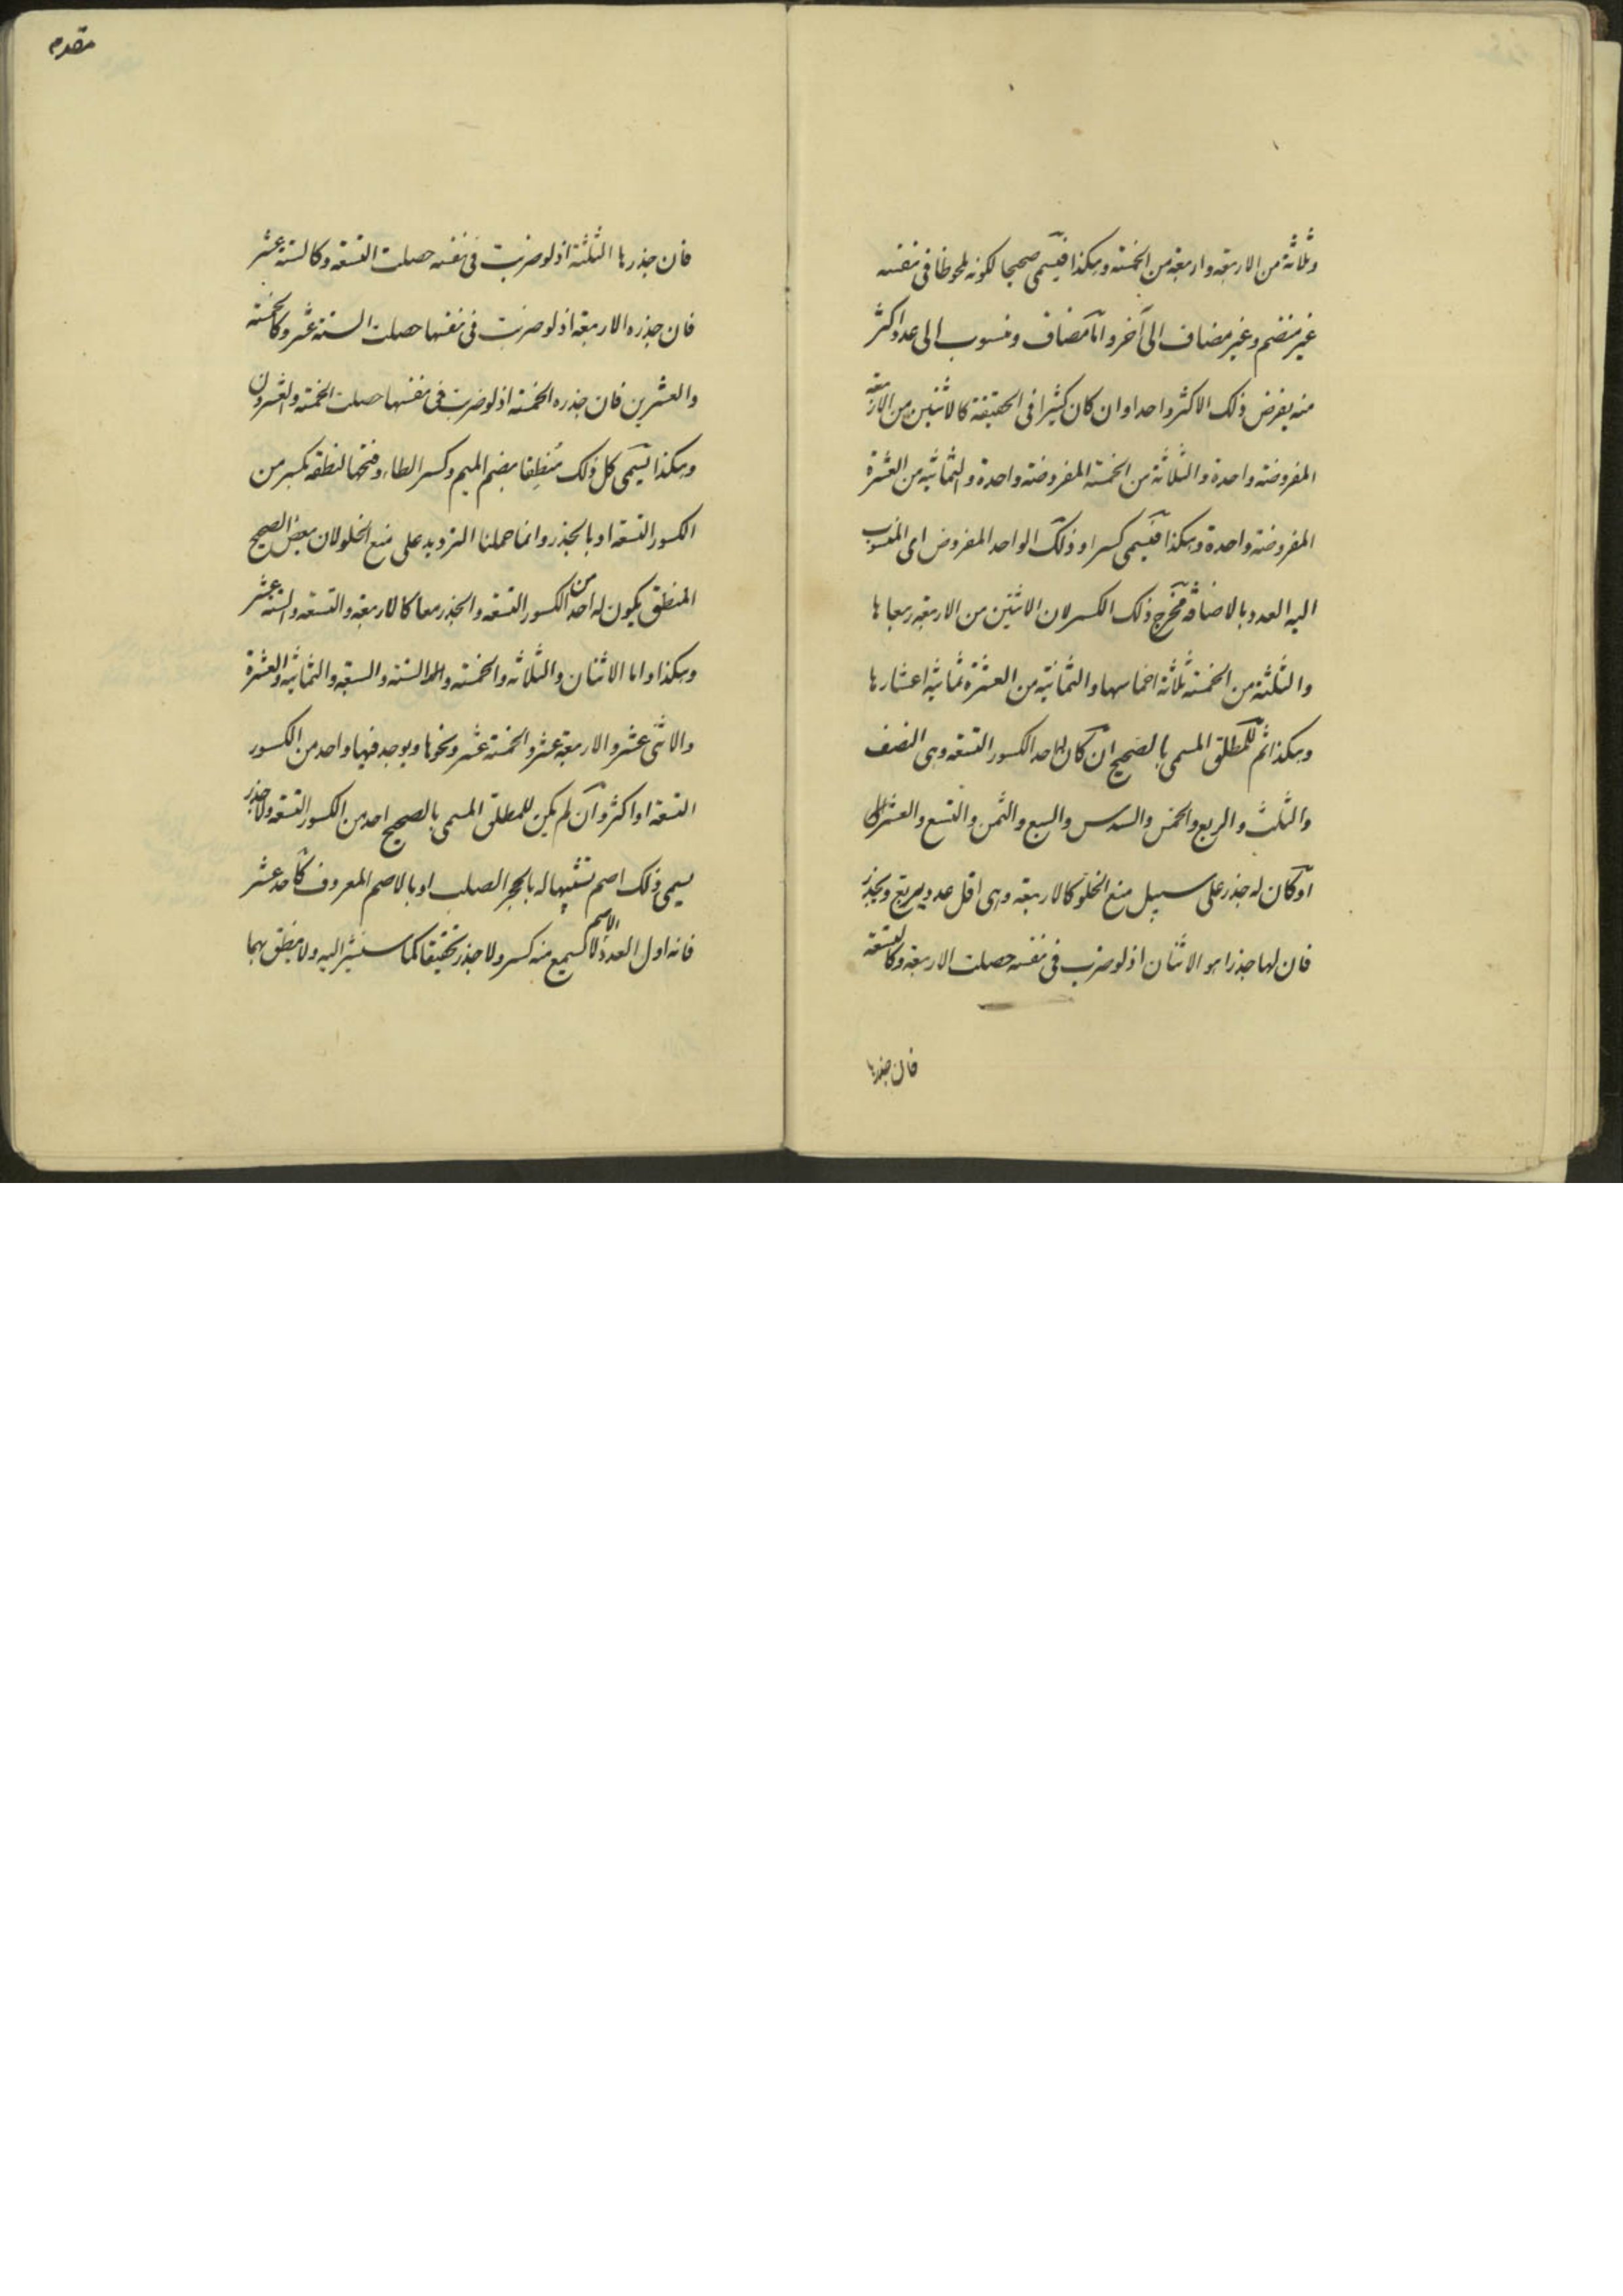 وثلاثة من الاربعة واربعة من الخمسة وهكذا فيسمى صحيحا لكونه ملحوظا في نفسه
غير منضم وغير مضاف الى آخر واما مضاف ومنسوب الى عدد اكثر
منه يفرض ذلك الاكثر واحدا وان كان كثيرا في الحقيقة كالاثنين من الاربعة
المفروضة واحدة والثلاثة من الخمسة المفروضة واحدة والثمانية من العشرة
المفروضة واحدة وهكذا فيسمى كسرا وذلك الواحد المفروض اى المنسوب
اليه العدد بالاضافة مخرج ذلك الكسر لان الاثنين من الاربعة ربعاها
والثلثة من الخمسة ثلاثة اخماسها والثمانية من العشرة ثمانية اعشارها
وهكذا ثم المطلق المسمى بالصحيح ان كان له احد الكسور التسعة وهى النصف
والثلث والربع والخمس والسدس والسبع والثمن والتسع والعشر
او كان له جذر على سبيل منع الخلو كالاربعة وهى اقل عدد يربع ويجذر
فان لها جذرا هو الاثنان اذ لو ضرب في نفسه حصلت الاربعة وكالتسعة
فان جذرها
مقدمه
فان جذرها الثلثة اذ لو ضربت في نفسه حصلت التسعة وكالستة عشر
فان جذره الاربعة اذ لو ضربت في نفسها حصلت الستة عشر وكالخمسة
والعشرين فان جذره الخمسة اذ لو ضربت في نفسها حصلت الخمسة والعشرون
وهكذا يسمى كل ذلك مُنطِقا بضم الميم وكسر الطاء وفتحها لنطقه بكسر من
الكسور التسعة او بالجذر وانما حملنا الترديد على منع الخلو لان بعض الصحيح
المنطق يكون له احد من الكسور التسعة والجذر معا كالاربعة والتسعة والستة عشر
وهكذا واما الاثنان والثلاثة والخمسة والستة والسبعة والثمانية والعشرة
والاثنى عشر والاربعة عشر والخمسة عشر ونحوها ويوجد فيها واحد من الكسور
التسعة او اكثر وان لم يكن للمطلق المسمى بالصحيح احد من الكسور التسعة ولا جذر
يسمى ذلك اصم تشبيها له بالحجر الصلب او بالاصم المعروف كأحد عشر
فانه اول العدد الاصم لا يسمع منه كسر ولا جذر تحقيقا كما سنشير اليه ولا ينطق بهما